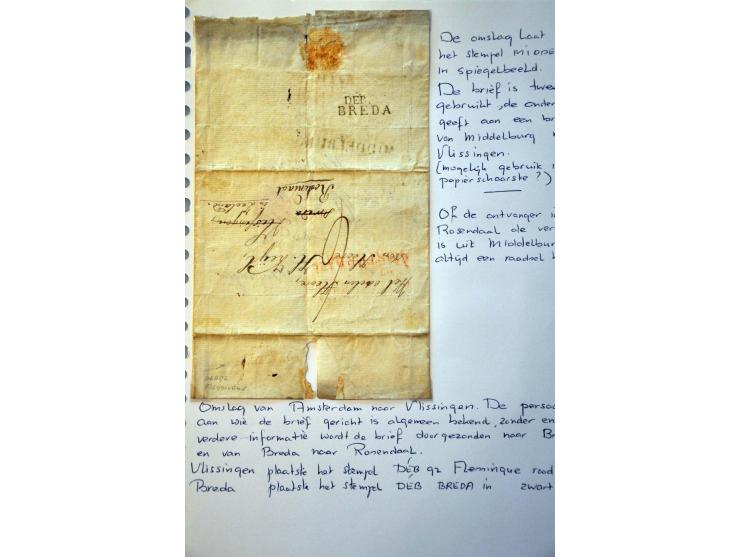 De omslag laat
het stempel MIDDE
in spiegelbeeld.
De brief is twee
gebruikt, de onder
geeft aan een br
van Middelburg
Vlissingen.
(mogelijk gebruik
papierschaarste ?)
Of de ontvanger i
Rosendaal die ver
is uit Middelbur
altijd een raadsel
DEB.
BREDA
MIDDELBURG
Rosendaal
Breda
Vlissingen,
in Zeeland.
Den Heere
Wel edelen Heere,
Omslag van Amsterdam naar Vlissingen. De persoo
aan wie de brief gericht is algemeen bekend, zonder en
verdere informatie wordt de brief doorgezonden naar Br
en van Breda naar Rosendaal.
Vlissingen plaatste het stempel DÉB 92 Flessingue rood
Breda plaatste het stempel DÉB BREDA in zwart